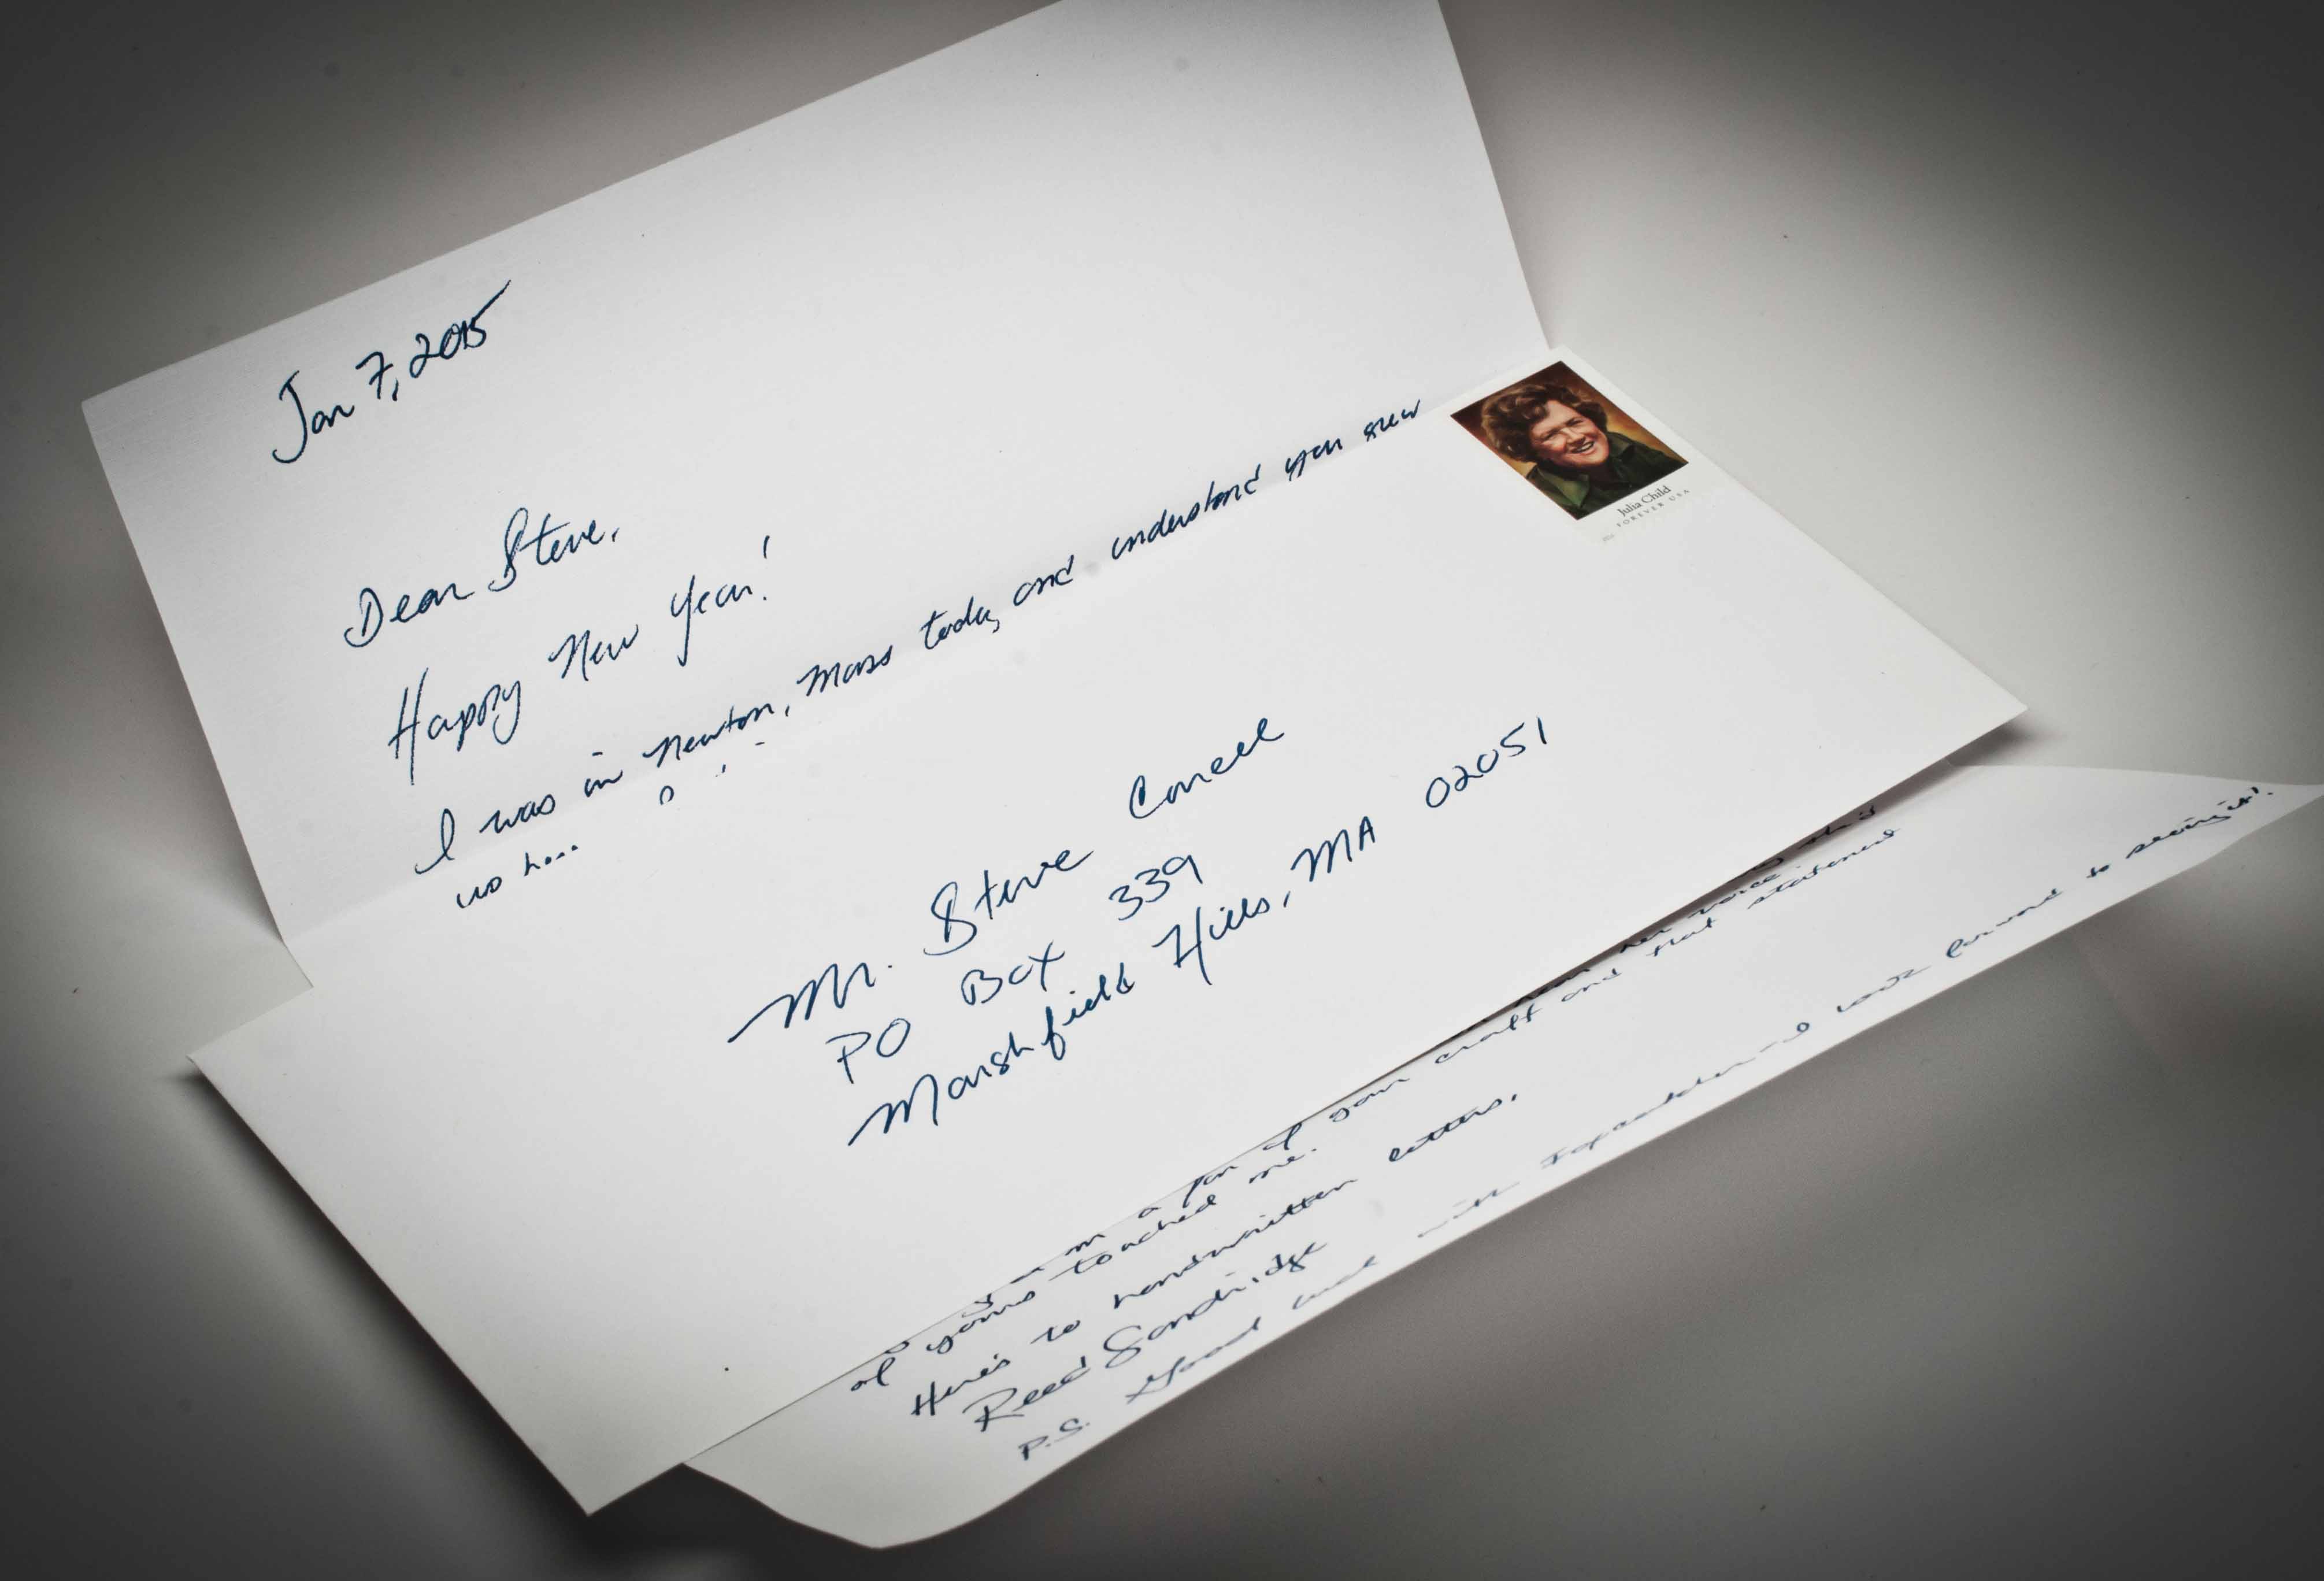 Jan 7, 2015
Dear Steve,
Happy New Year!
I was in Newton, Mass today and understand you grew
Julia Child
FOREVER USA
Mr. Steve Carell
PO Box 339
Marshfield Hills, MA 02051
a fan of your craft and that statement
of yours touched me.
Here's to handwritten letters.
Reed Sandridge
P.S. Good luck with Foxcatcher and look forward to seeing it!